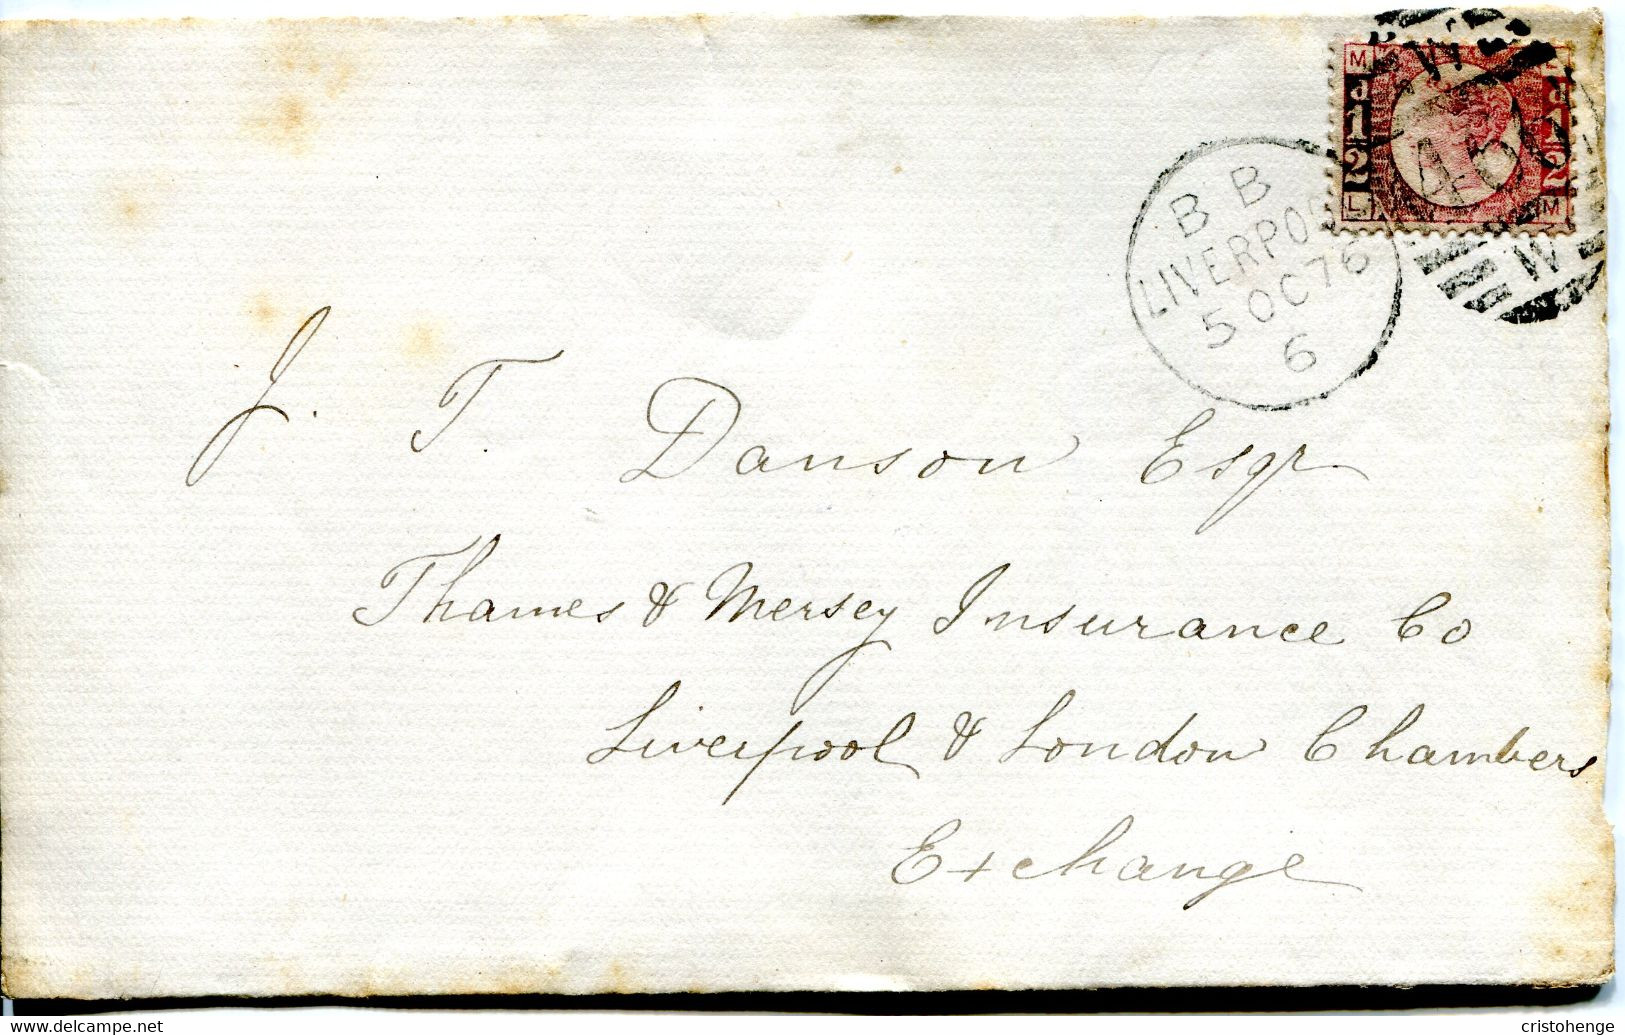 M
d
1
2
L
d
1
2
M
W
W
B B
LIVERPOO
5 OC 76
6
J. T. Danson Esqr
Thames & Mersey Insurance Co
Liverpool & London Chambers
Exchange
www.delcampe.net
cristohenge